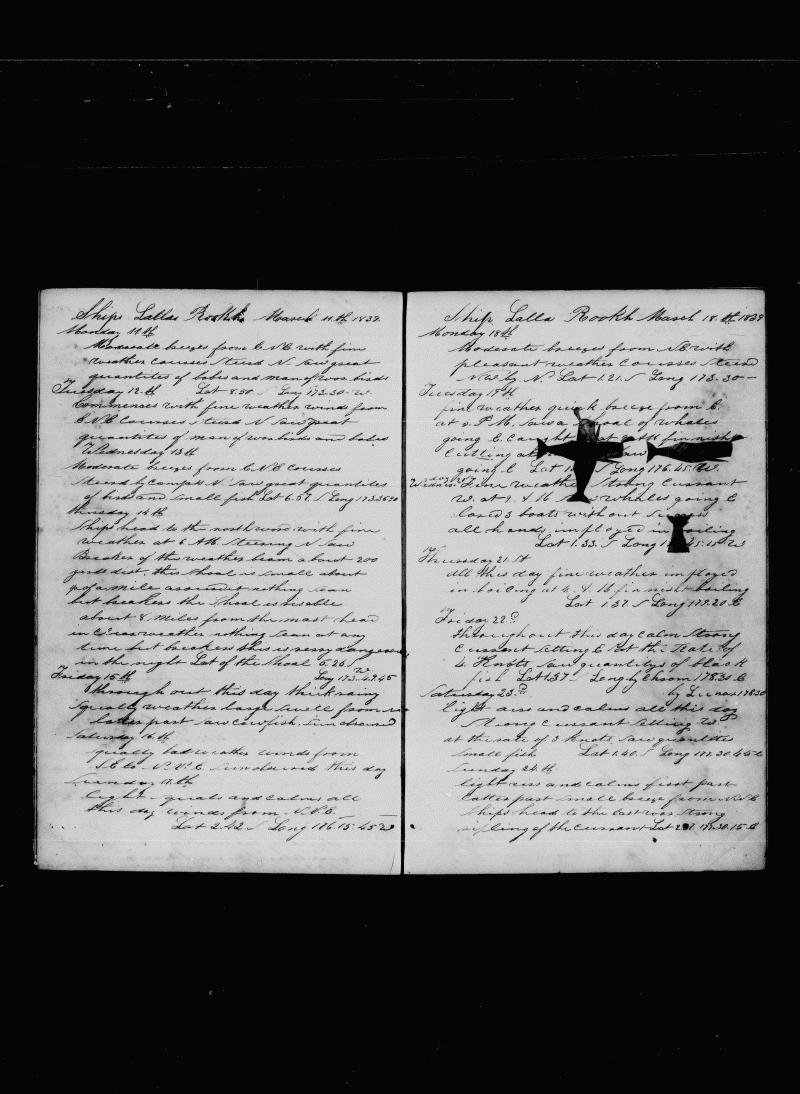 Ships Lalla Rookh March 11th 1839
Monday 11th
Moderate breezes from E N E with fine
weather courses steerd N. Saw great
quantites of bobes and man of wor birds
Tuesday 12th Lat 8.50 S Long 173.30 W
Commenses with fine weather winds from
E N E courses steerd N saw great
quantites of man of wor birds and bobes
Wednesday 13th
Moderate breezes from E N E courses
steerd by Compass N. Saw great quantites
of birds and small fish Lat 6.57 S Long 173.36
Thursday 14th
Ships head to the northword with fine
weather at 6 AM steering N saw
Breaker of the weather beam about 200
yards dist this shoal is small about
of a mile around nothing sean
but breakers the shoal is visable
about 8 miles from the mast head
in clear weather nothing sean at any
time but breakers this is verry dangerous
in the night Lat of the Shoal 6.26 S
Friday 15th Long 173.49.45 W
through out this day thick rainy
squally weather large swell from
later part saw cowfish. Sun obscured
Saturday 16th
qually bad weather winds from
S.E. to N.N.E. Sun obscured this day
Sunday 17th
light quals and calms all
this day winds from N.N.E.
Lat 2.42 S Long 176.15.45 W
Ship Lalla Rookh March 18th 1839
Monday 18th
Moderate breezes from N.E. with
pleasant weather courses steerd
N W by N. Lat 1.21. S Long 173.30
Tuesday 19th
fine weather quick breeze from E.
at 2 P.M. Saw a of whales
going E. Caught at 60th fin nisht
Cutting at saw
going E Lat 1 S Long 176.45 W.
Wednesday 20 Fine weather Strong Currant
W. at 9. A M Saw whales going E
lored 3 boats without Sucsess
all hands imployed in boiling
Lat 1.33. S Long 45.15 W
Thursday 21.st
All this day fine weather imployed
in boiling at 4. A M finnisht boiling
Lat 1.37. S Long 179.20 E
Friday 22d
Throughout this day calm strong
Currant setting E at the Rate of
4. Knots saw quantitys of black
fish Lat 1.37 Long by Chrom 178.30 E
Saturday 23.d by Lunar 178.30
light airs and calms all this day
Strong Currant setting W
at the rate of 3 Knots. Saw quantites
small fish Lat 1.40. S Long 177.30.45 E
Sunday 24th
light airs and calms first part
latter part small breeze from N.N.E
Ships head to the Eastward strong
ripling of the Currant Lat 177.30.15 E